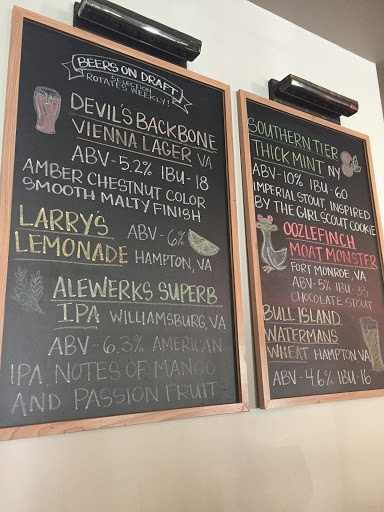 BEERS ON DRAFT
SELECTION
ROTATES WEEKLY!
DEVIL'S BACKBONE
VIENNA LAGER VA
ABV-5.2% IBU-18
AMBER CHESTNUT COLOR
SMOOTH MALTY FINISH
LARRY'S
LEMONADE ABV-6%
HAMPTON, VA
ALEWERKS SUPERB
IPA WILLIAMSBURG, VA
ABV-6.3% AMERICAN
IPA, NOTES OF MANGO
AND PASSION FRUIT
SOUTHERN TIER
THICK MINT NY
ABV-10% IBU-60
IMPERIAL STOUT, INSPIRED
BY THE GIRL SCOUT COOKIE
OOZLEFINCH
MOAT MONSTER
FORT MONROE, VA
ABV-5% IBU-33
CHOCOLATE STOUT
BULL ISLAND
WATERMANS
WHEAT HAMPTON VA
ABV-4.6% IBU-16